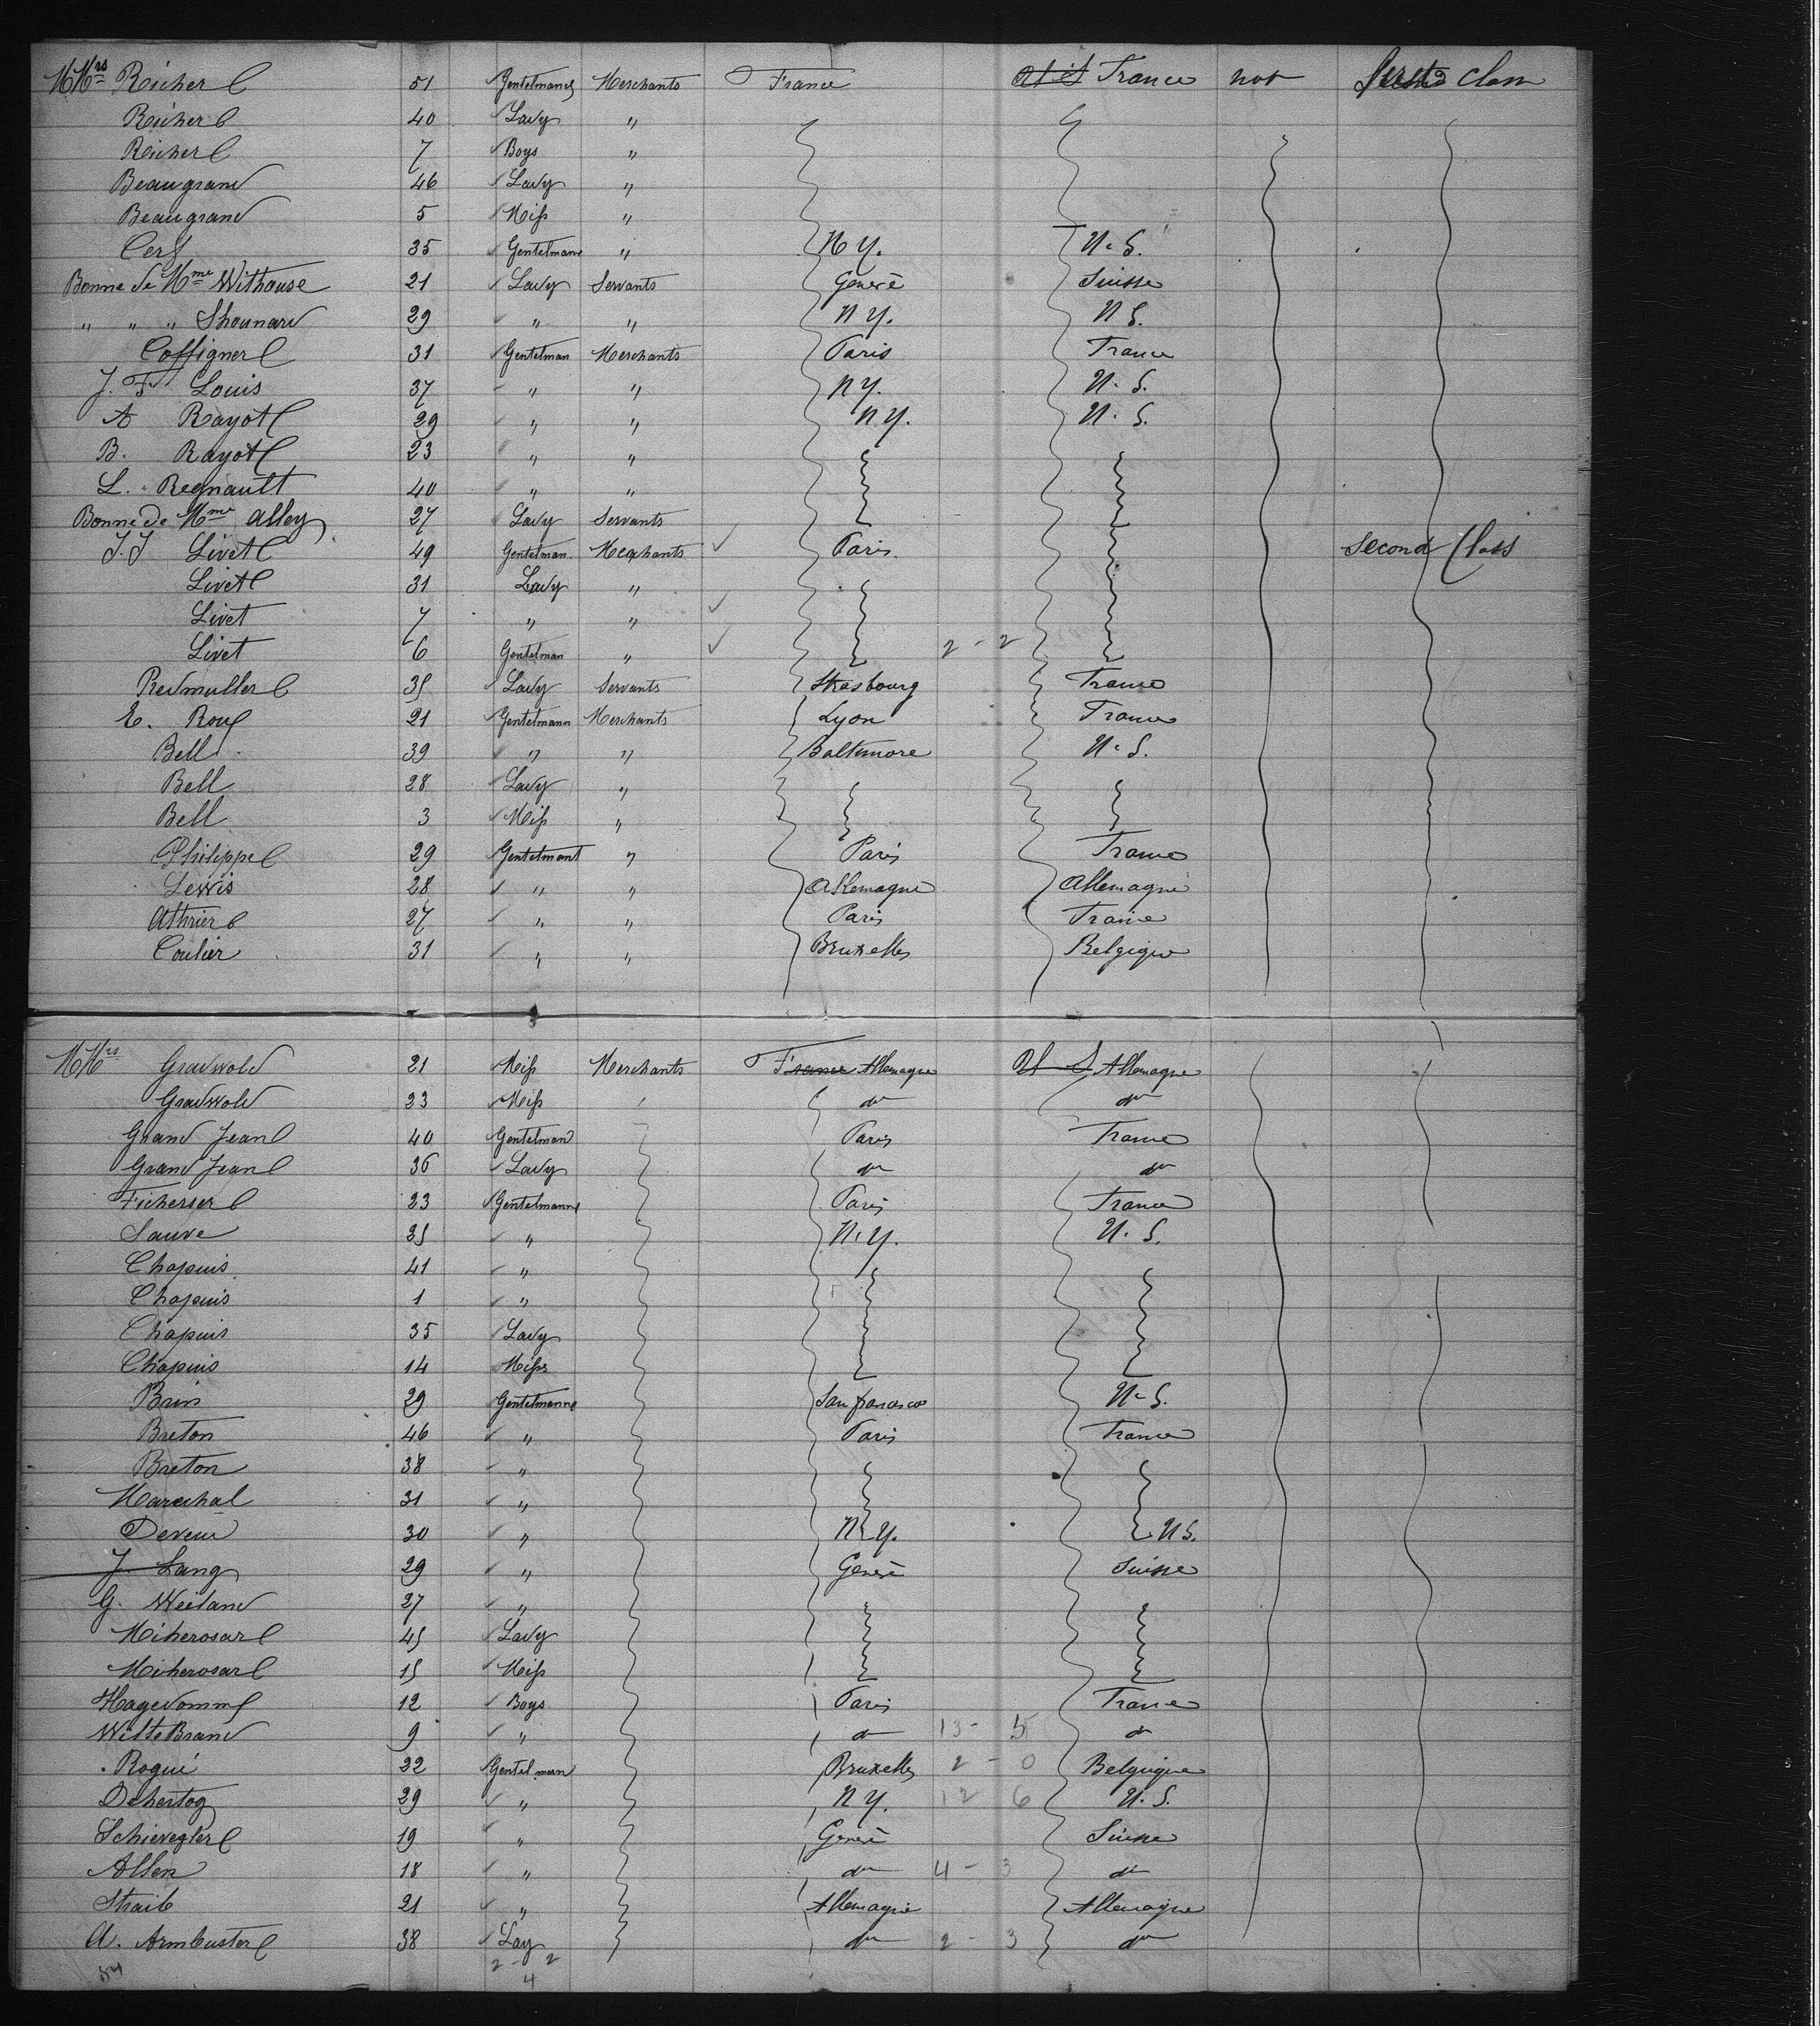 MMrs Reicher C 51 Gentelmans Merchants France U S France not first class
Reicher C 40 Lady "
Reicher C 7 Boys "
Beaugrand 46 Lady "
Beaugrand 5 Miss "
Cerf 35 Gentelmans " N Y. U. S.
Bonne de Mme Withouse 21 Lady Servants Genevè Suisse
" " " Shounard 29 " " N Y. U S.
Coffigner C 31 Gentelman Merchants Paris France
J. F Louis 37 " " N Y. U. S.
A Rayot C 29 " " N Y. U. S.
B. Rayot C 23 " "
L. Regnault 40 " "
Bonne de Mme Alley 27 Lady Servants
J. J Livet C 49 Gentelman Merchants Paris second Class
Livet C 31 Lady "
Livet 7 " "
Livet 6 Gentelman " 2 - 2
Redmuller C 35 Lady Servants Strasbourg France
E. Roux 21 Gentelmann Merchants Lyon France
Bell 39 " " Baltimore U. S.
Bell 28 Lady "
Bell 3 Miss "
Philippe C 29 Gentelmant " Paris France
Lewis 28 " " Allemagne Allemagne
Athrier C 27 " " Paris France
Coulier 31 " " Bruxelles Belgique
MMrs Gradwold 21 Miss Merchants France Allemagne U S Allemagne
Gradwold 23 Miss do do
Grand Jean C 40 Gentelman Paris France
Grand Jean C 36 Lady do do
Ficherser C 23 Gentelmanns Paris France
Sauve 35 " N. Y. U. S.
Chapuis 41 "
Chapuis 1 "
Chapuis 35 Lady
Chapuis 14 Miss
Brin 29 Gentelmanns San francisco U. S.
Breton 46 " Paris France
Breton 38 "
Marechal 31 "
Deveur 30 " N Y. U S.
J. Lang 29 " Genevè Suisse
G. Weiland 27 "
Miherosar C 45 Lady
Miherosar C 15 Miss
Hagedomm C 12 Boys Paris France
Witte Brand 9 " do 13 - 5 do
Rogué 22 Gentelman Bruxelles 2 - 0 Belgique
Dehertog 29 " N Y. 12 6 U. S.
Schievegler C 19 " Genevè Suisse
Allen 18 " do 4 - 3 do
Straib 21 " Allemagne Allemagne
A. Armbuster C 38 Lay do 2 - 3 do
54 2 - 2
4